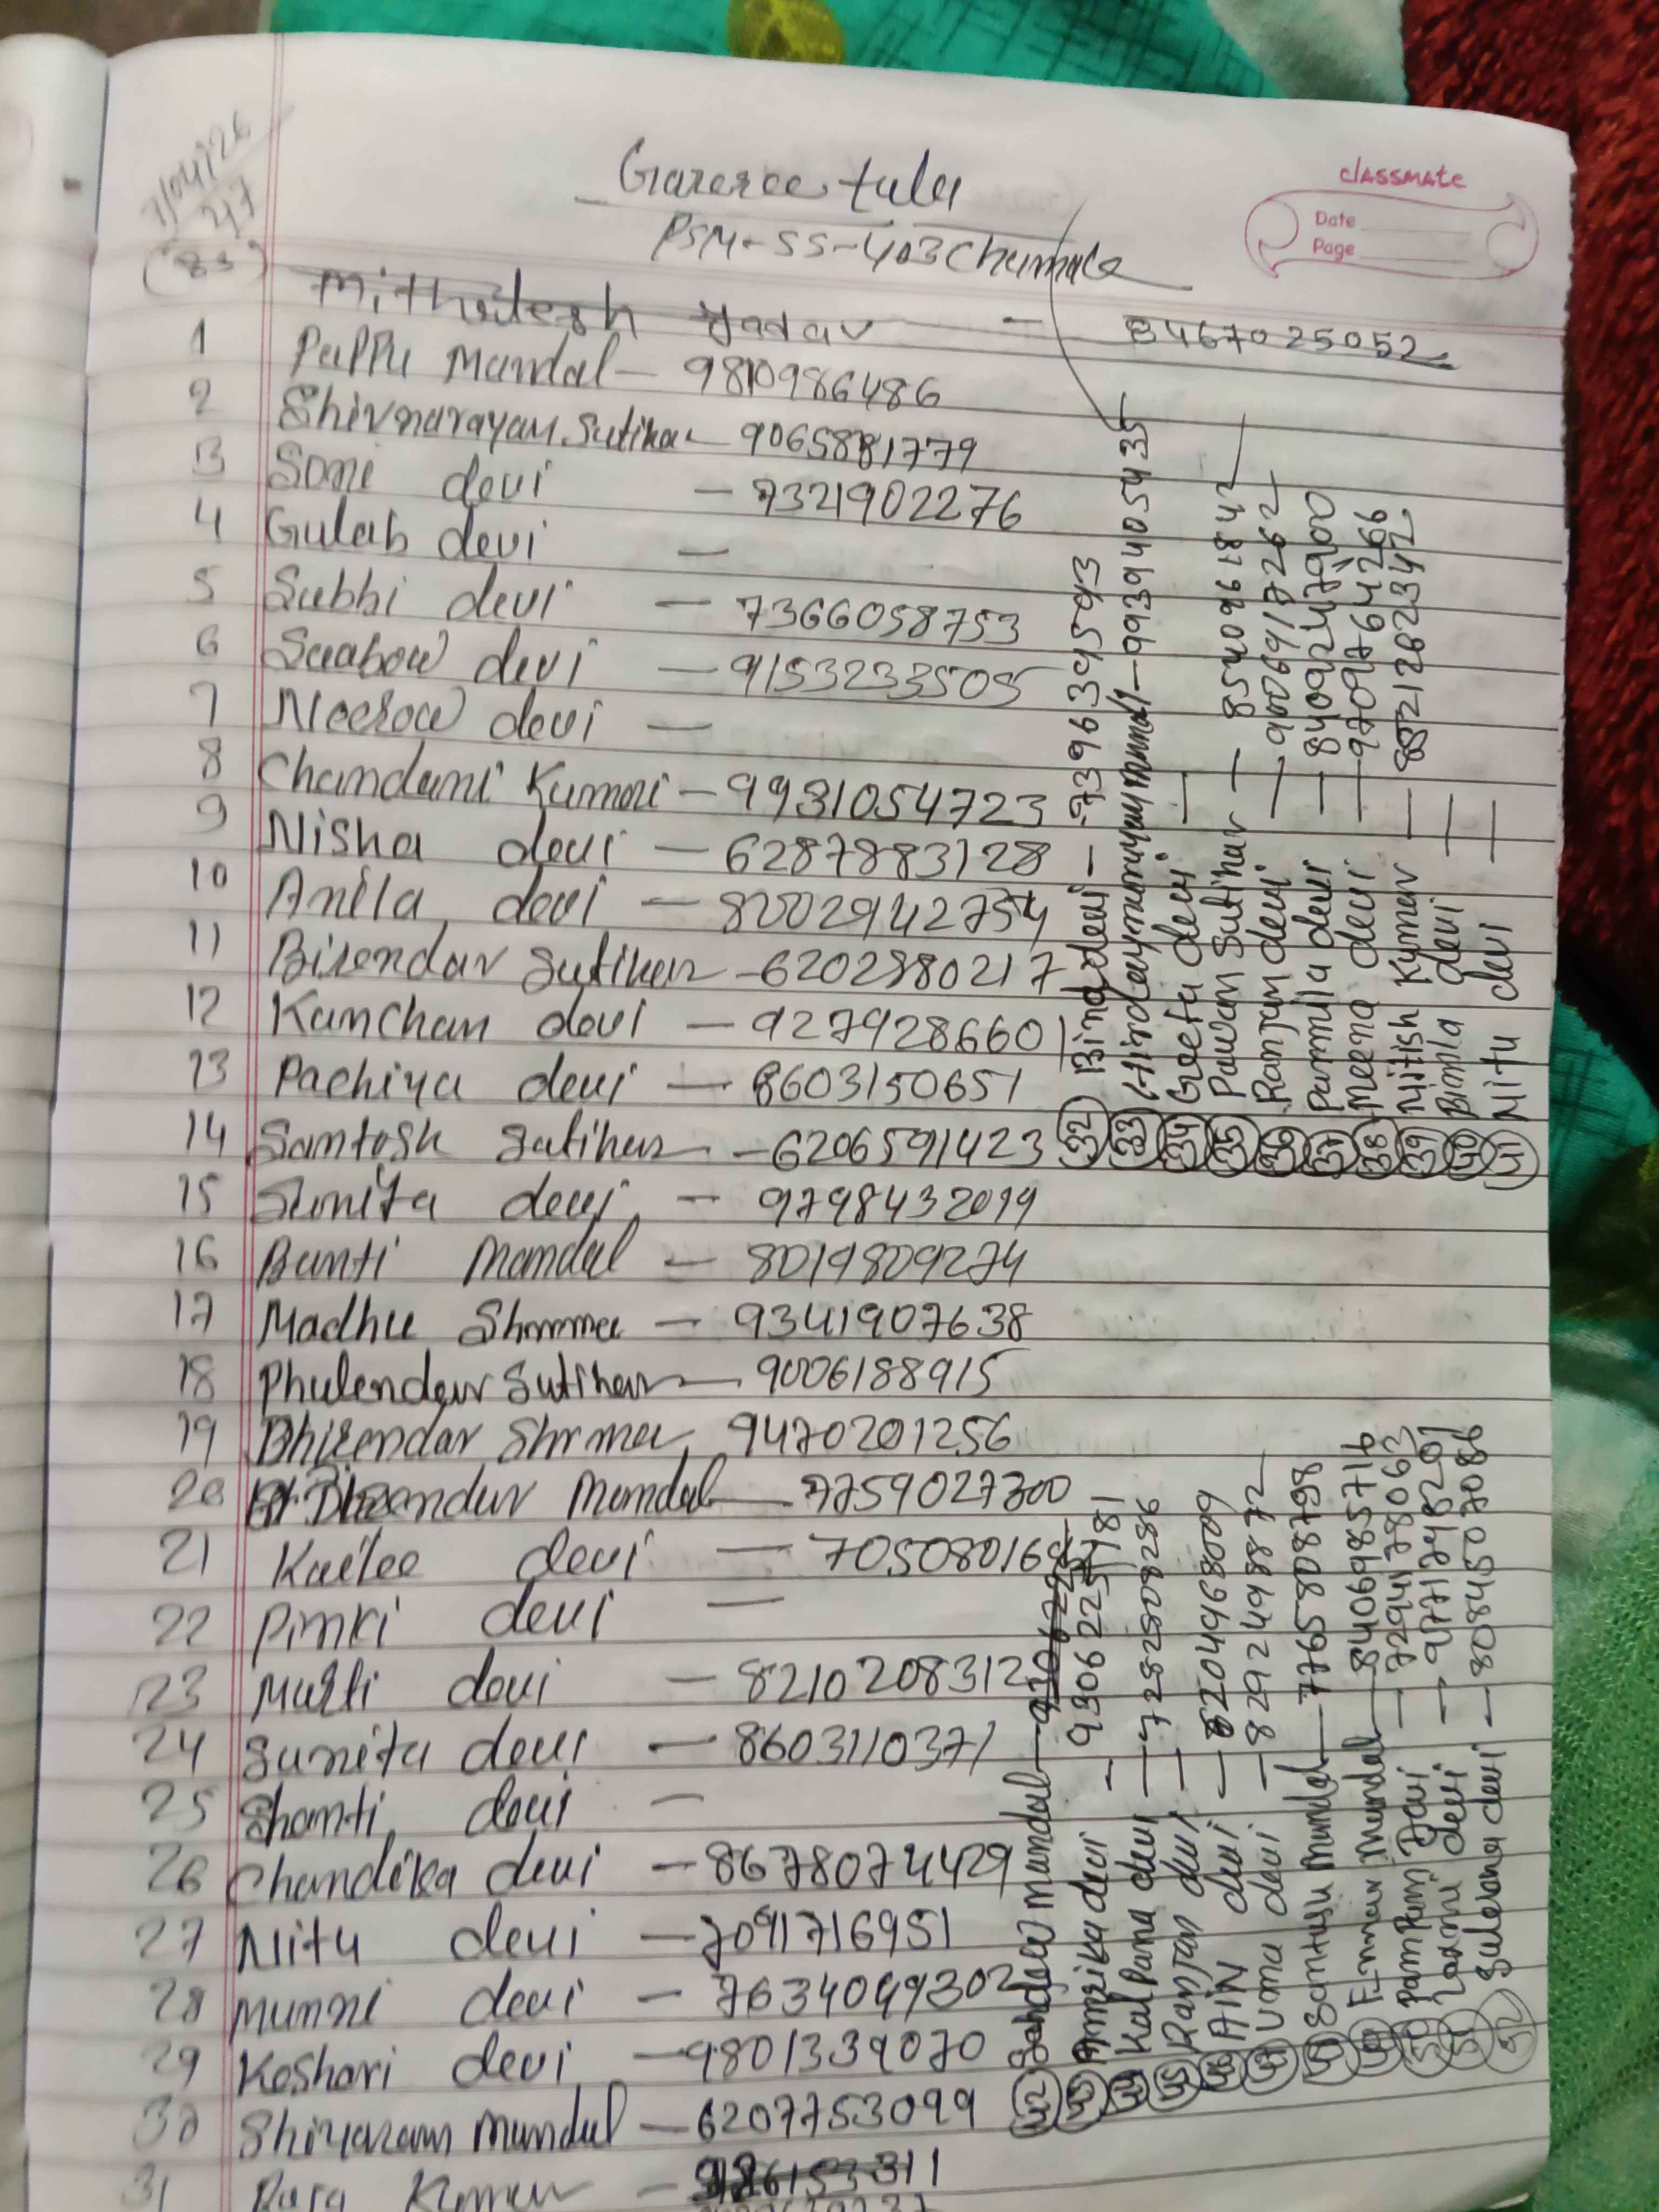 7/04/26
47
(83)
classmate
Date
Page
Gareree tula
PSM-SS-403 Chumala
Mithilesh Yadav - 8467025052
1 Pappu Mandal - 9810986486
2 Shivnarayan Sutihar 9065881779
3 Soni devi - 7321902276
4 Gulab devi -
5 Subhi devi - 7366058753
6 devi - 9153233505
7 devi -
8 Chandani Kumari - 9931054723
9 Nisha devi - 6287883128
10 Anila devi - 8002942754
11 Birendar Sutihar - 6202980217
12 Kanchan devi - 9279286601
13 Pachiya devi - 8603150651
14 Santosh Sutihar - 6206591423
15 Sunita devi - 9798432019
16 Bunti Mandal - 8019809274
17 Madhu Shrmma - 9341907638
18 Phulendar Sutihar - 9006188915
19 Dhirendar Shrma 9470201256
20 Mandal - 7759027300
21 Kailee devi - 7050801687
22 Pinki devi -
23 Murti devi - 8210208312
24 Sunita devi - 8603110371
25 Shanti devi -
26 Chandika devi - 8678074429
27 Nitu devi - 7091716951
28 Munni devi - 7634049302
29 Koshari devi - 9801339070
30 Shiyaram Mandal - 6207753099
31 Kumar -
32 Bina devi - 9396395593
33 - 9939405435
34 Geeta devi -
35 Pawan Sutihar - 8540961842
36 Ranjan devi - 9006917262
37 Parmila devi - 8409247900
38 Meena devi - 9709764266
39 Nitish Kumar - 8821262342
40 Bimla devi -
41 Nitu devi -
42 Sahdew Mandal -
43 Amrika devi - 9306225781
44 Kalpana devi - 7282508286
45 Ranjan devi -
46 AIN devi - 6204968009
47 Uma devi - 8292498872
48 Santusu Mandal - 7765808798
49 Mandal - 8406985716
50 Pampam Devi - 7294178063
51 Laxmi devi - 9771748201
52 Sulena devi - 8084507086